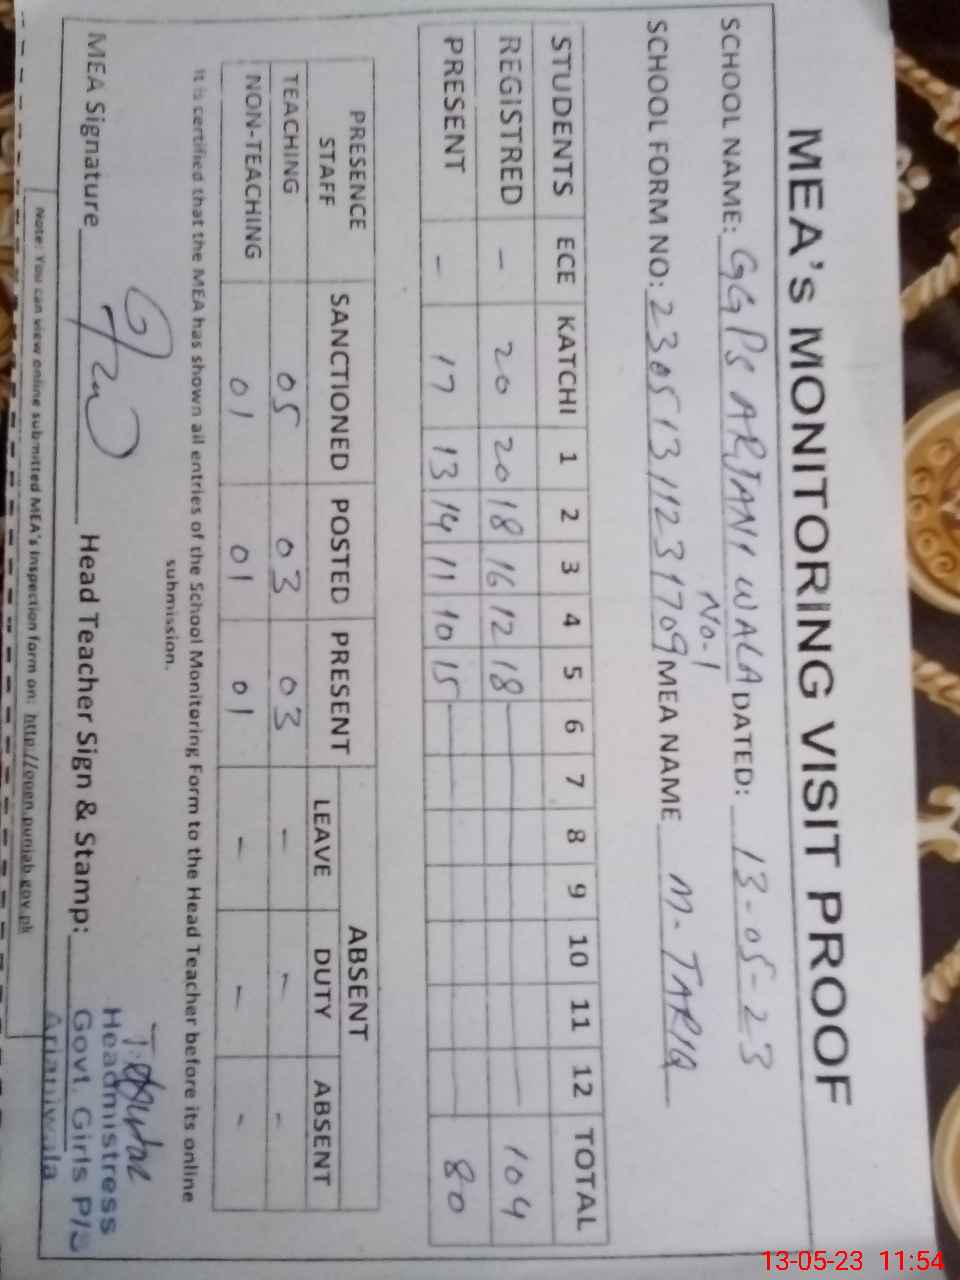 MEA's MONITORING VISIT PROOF
SCHOOL NAME: GGPS ARJANI WALA No.1 DATED: 13-05-23
SCHOOL FORM NO: 23051311231709 MEA NAME M. TARIQ
STUDENTS ECE KATCHI 1 2 3 4 5 6 7 8 9 10 11 12 TOTAL
REGISTRED - 20 20 18 16 12 18 104
PRESENT - 17 13 14 11 10 15 80
PRESENCE STAFF SANCTIONED POSTED PRESENT ABSENT
LEAVE DUTY ABSENT
TEACHING 05 03 03 - - -
NON-TEACHING 01 01 01 - - -
It is certified that the MEA has shown all entries of the School Monitoring Form to the Head Teacher before its online
submission.
MEA Signature Head Teacher Sign & Stamp:
Headmistress
Govt. Girls P/S
Arianiwala
Note: You can view online submitted MEA's inspection form on: http://open.punjab.gov.pk
13-05-23 11:54